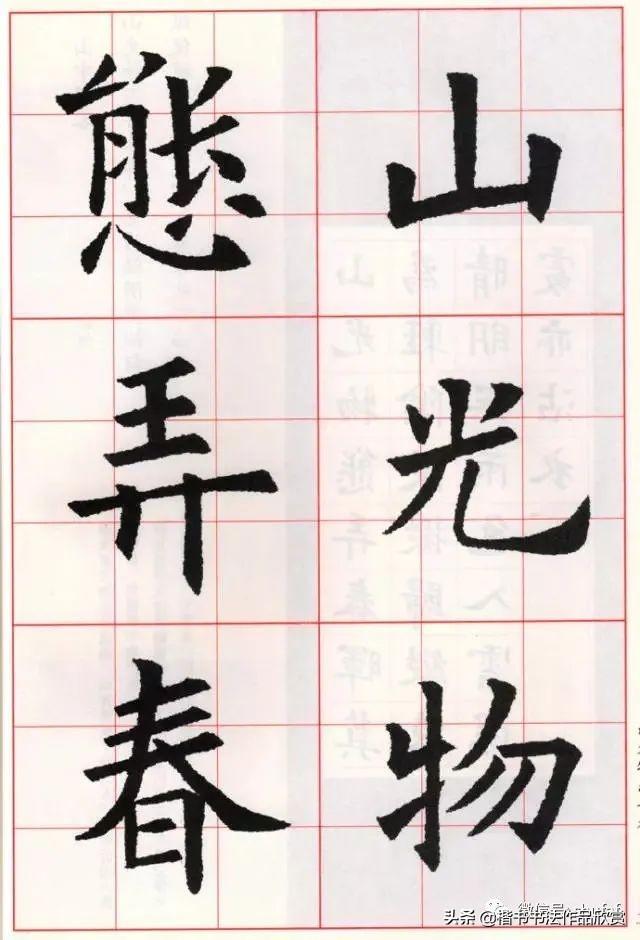 山光物
態弄春
头条@楷书书法作品欣赏